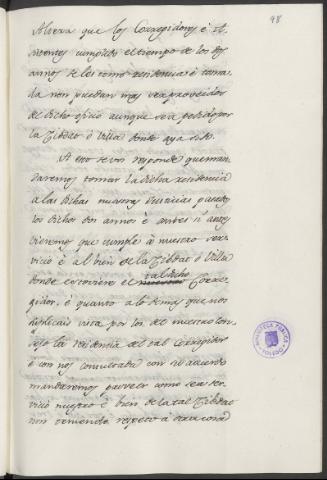 98
Alteza que los Corregidores é A-
sistentes cumplido el tiempo de los dos
años se les tome residencia é toma-
da non puedan mas ser proveidos
del dicho oficio aunque sea pedido por
la Cibdat ó Villa donde aya sido.
A esto se vos responde que man-
daremos tomar la dicha residencia
a las dichas nuestras Justicias pasados
los dichos dos años é antes si antes
vieremos que cumple á nuestro ser-
vicio é al bien de la Cibdat ó Villa
donde estoviere el tal dicho Corre-
gidor, é quanto a lo demas que nos
suplicais vista por los del nuestro Con-
sejo la residencia del tal Corregidor
é con nos consultada con su acuerdo
mandaremos proveer como sea ser-
vicio nuestro é bien de la tal Cibdat
non teniendo respeto á otra cosa
BIBLIOTECA PUBLICA
TOLEDO